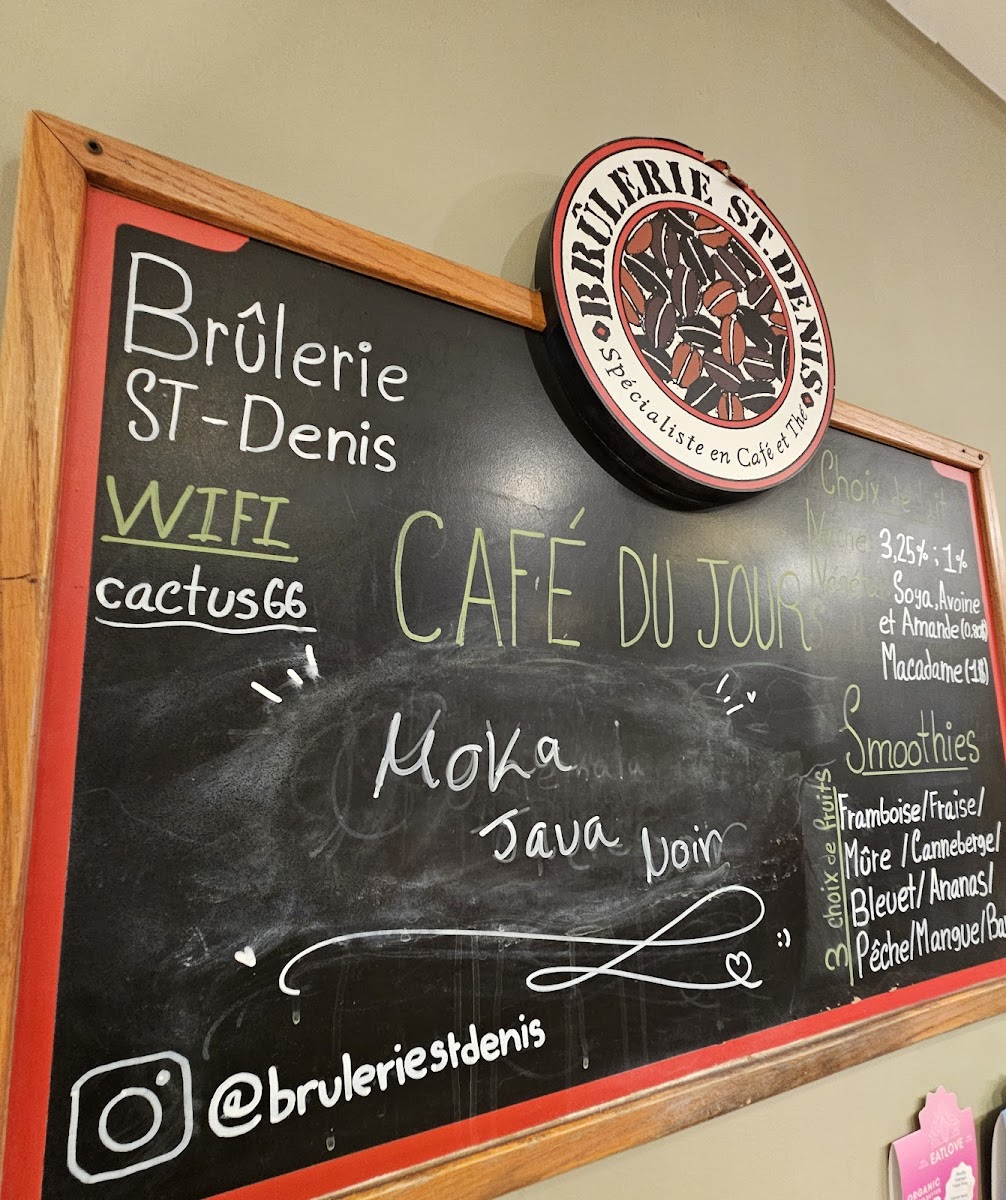 BRÛLERIE ST. DENIS
Spécialiste en Café et Thé
Brûlerie
ST-Denis
WIFI
cactus66
CAFÉ DU JOUR
Moka
Java Noir
@bruleriestdenis
Choix de lait
3,25% ; 1%
Soya, Avoine
et Amande
Macadame (1$)
Smoothies
3 choix de fruits
Framboise/Fraise/
Mûre /Canneberge/
Bleuet/Ananas/
Pêche/Mangue/
EATLOVE
ORGANIC